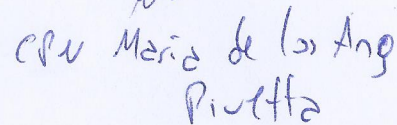 CPN Maria de los Ang
Pivetta